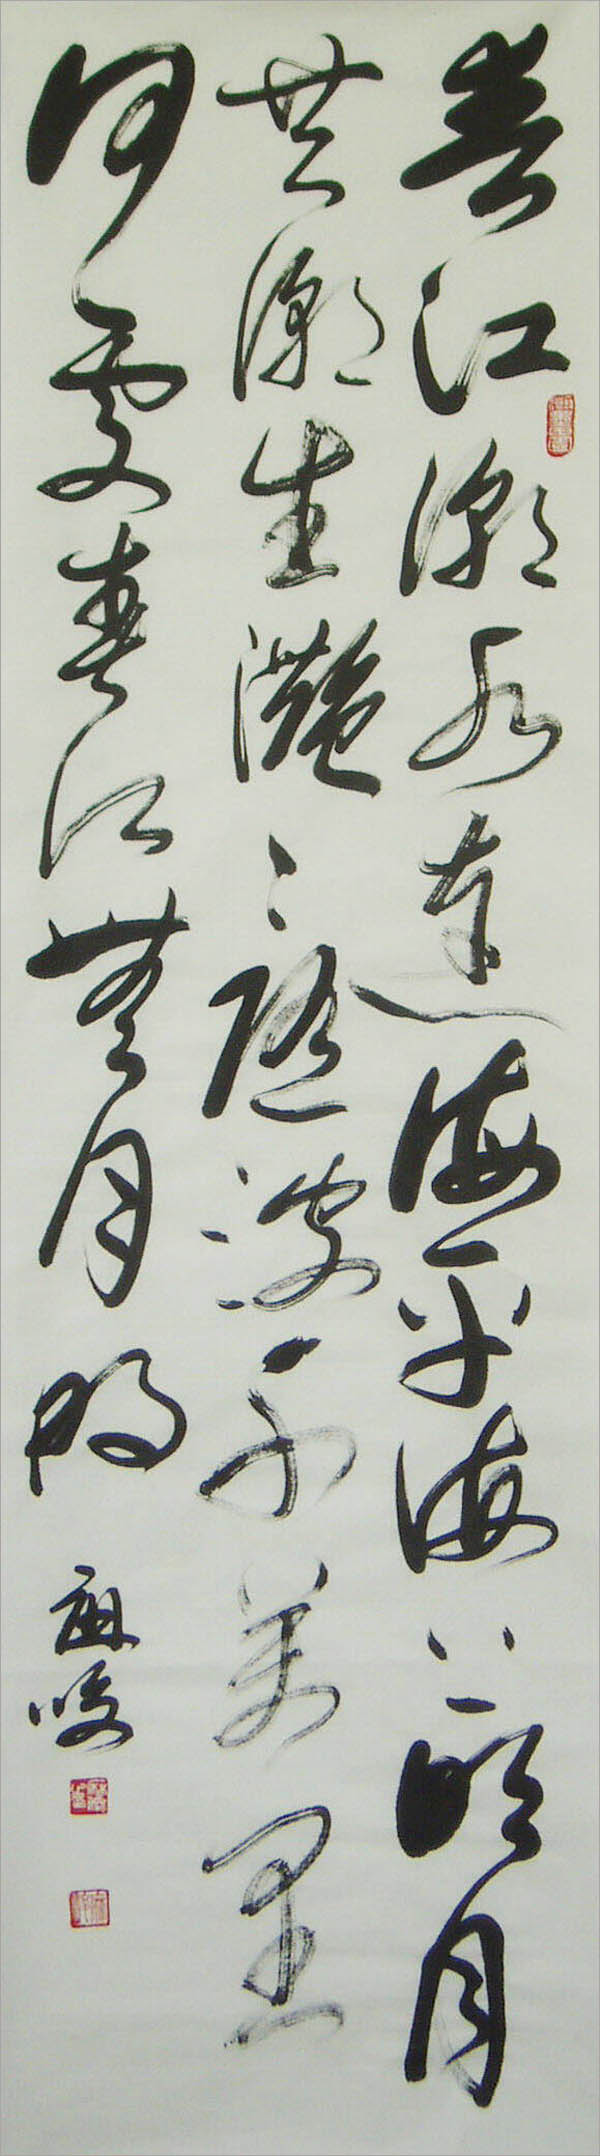 春江潮水連海平海上明月
共潮生灧〻隨波千萬里
何處春江無月明